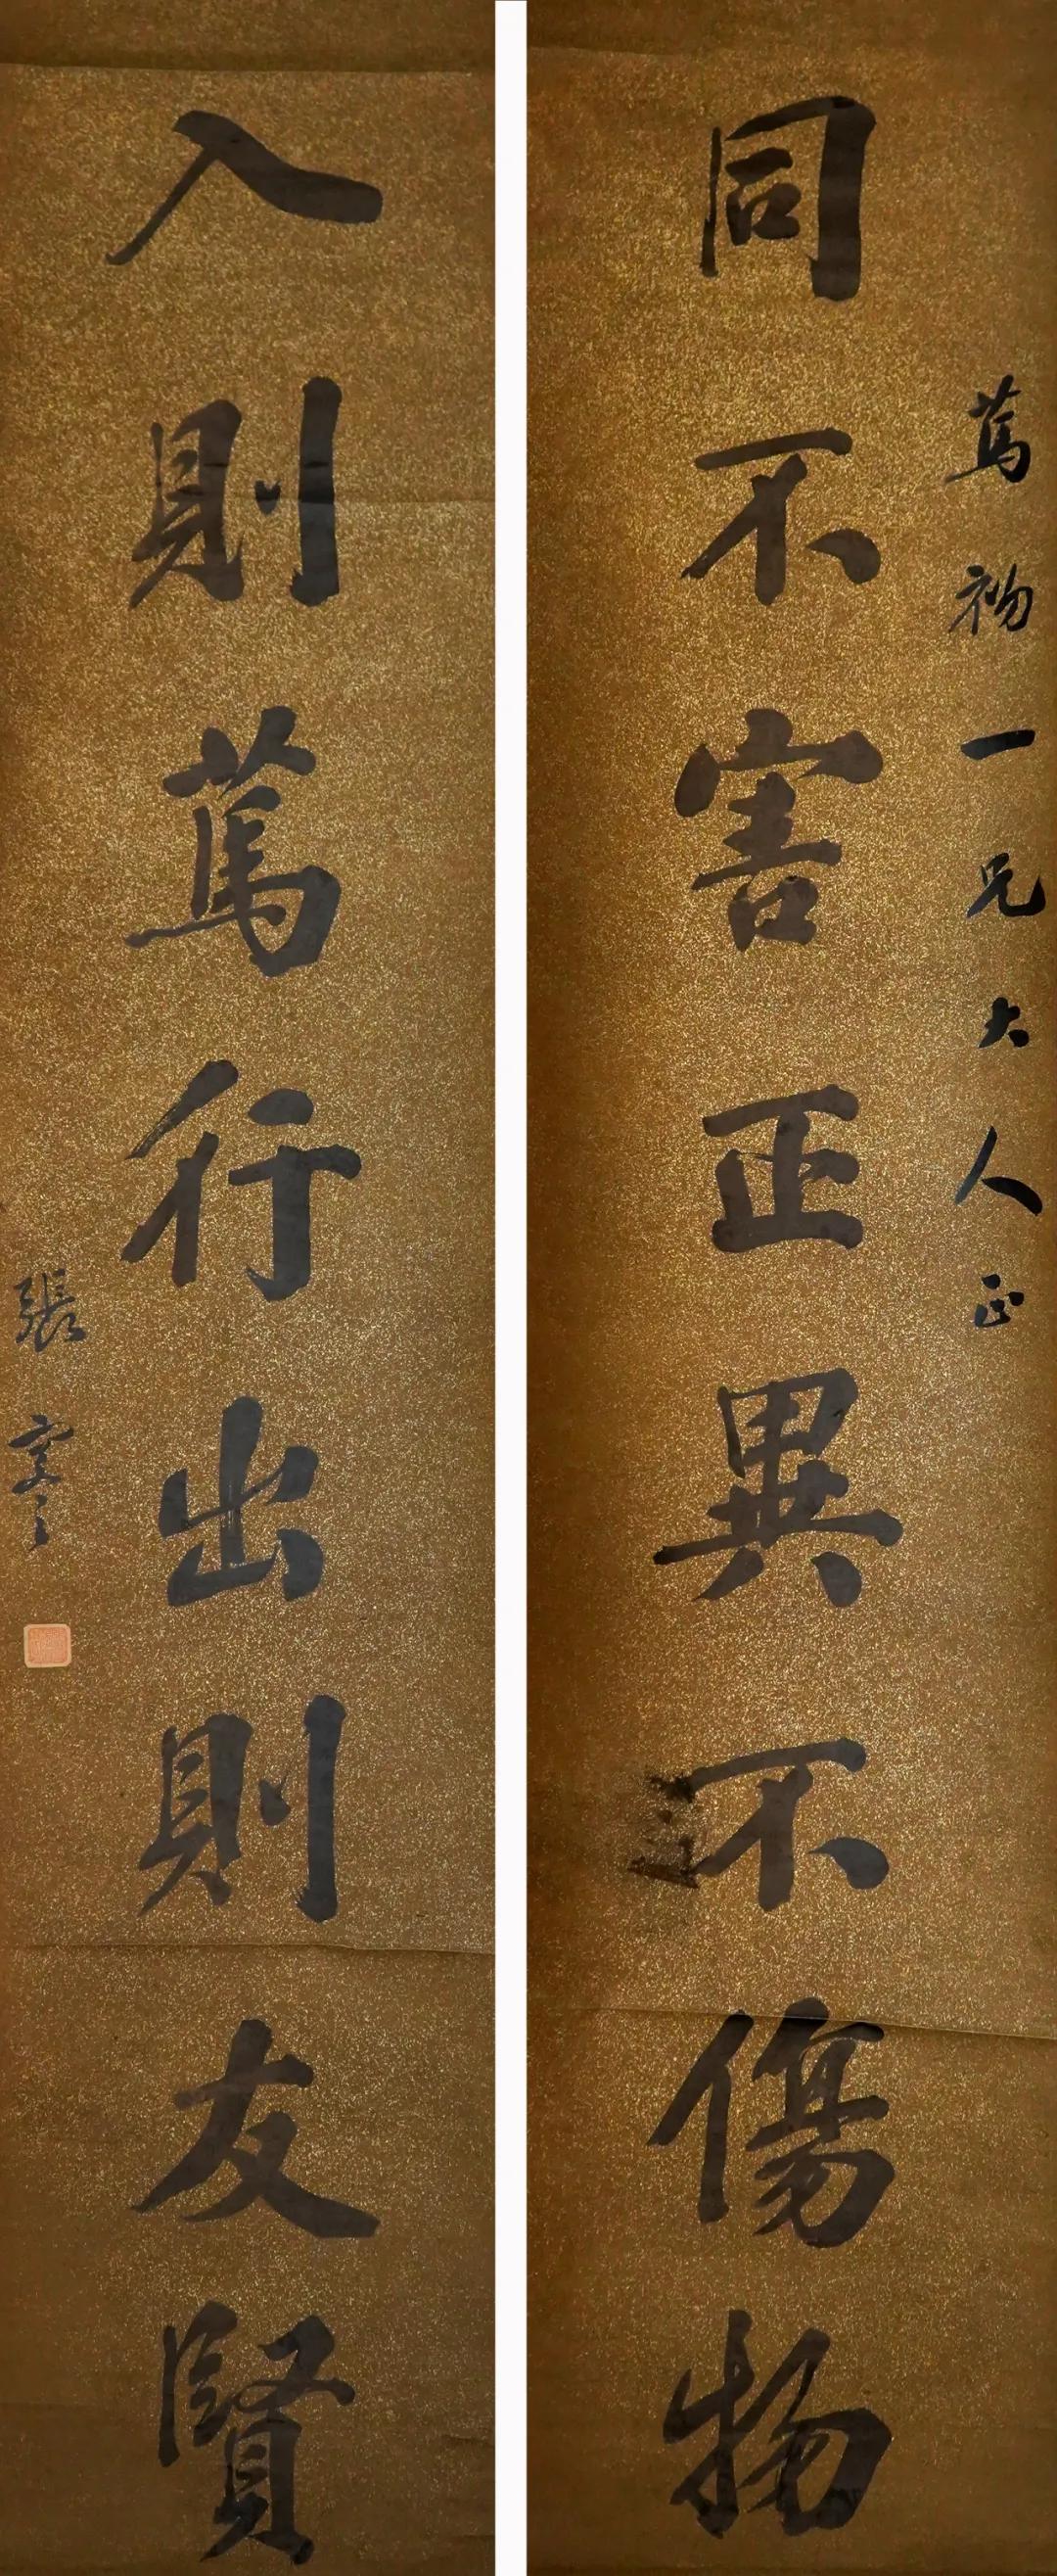 篤一兄大人正
同不害正異不傷物
入則篤行出則友賢
張謇